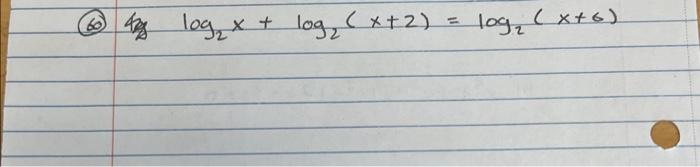 60 log₂ x + log₂ (x+2) = log₂ (x+6)